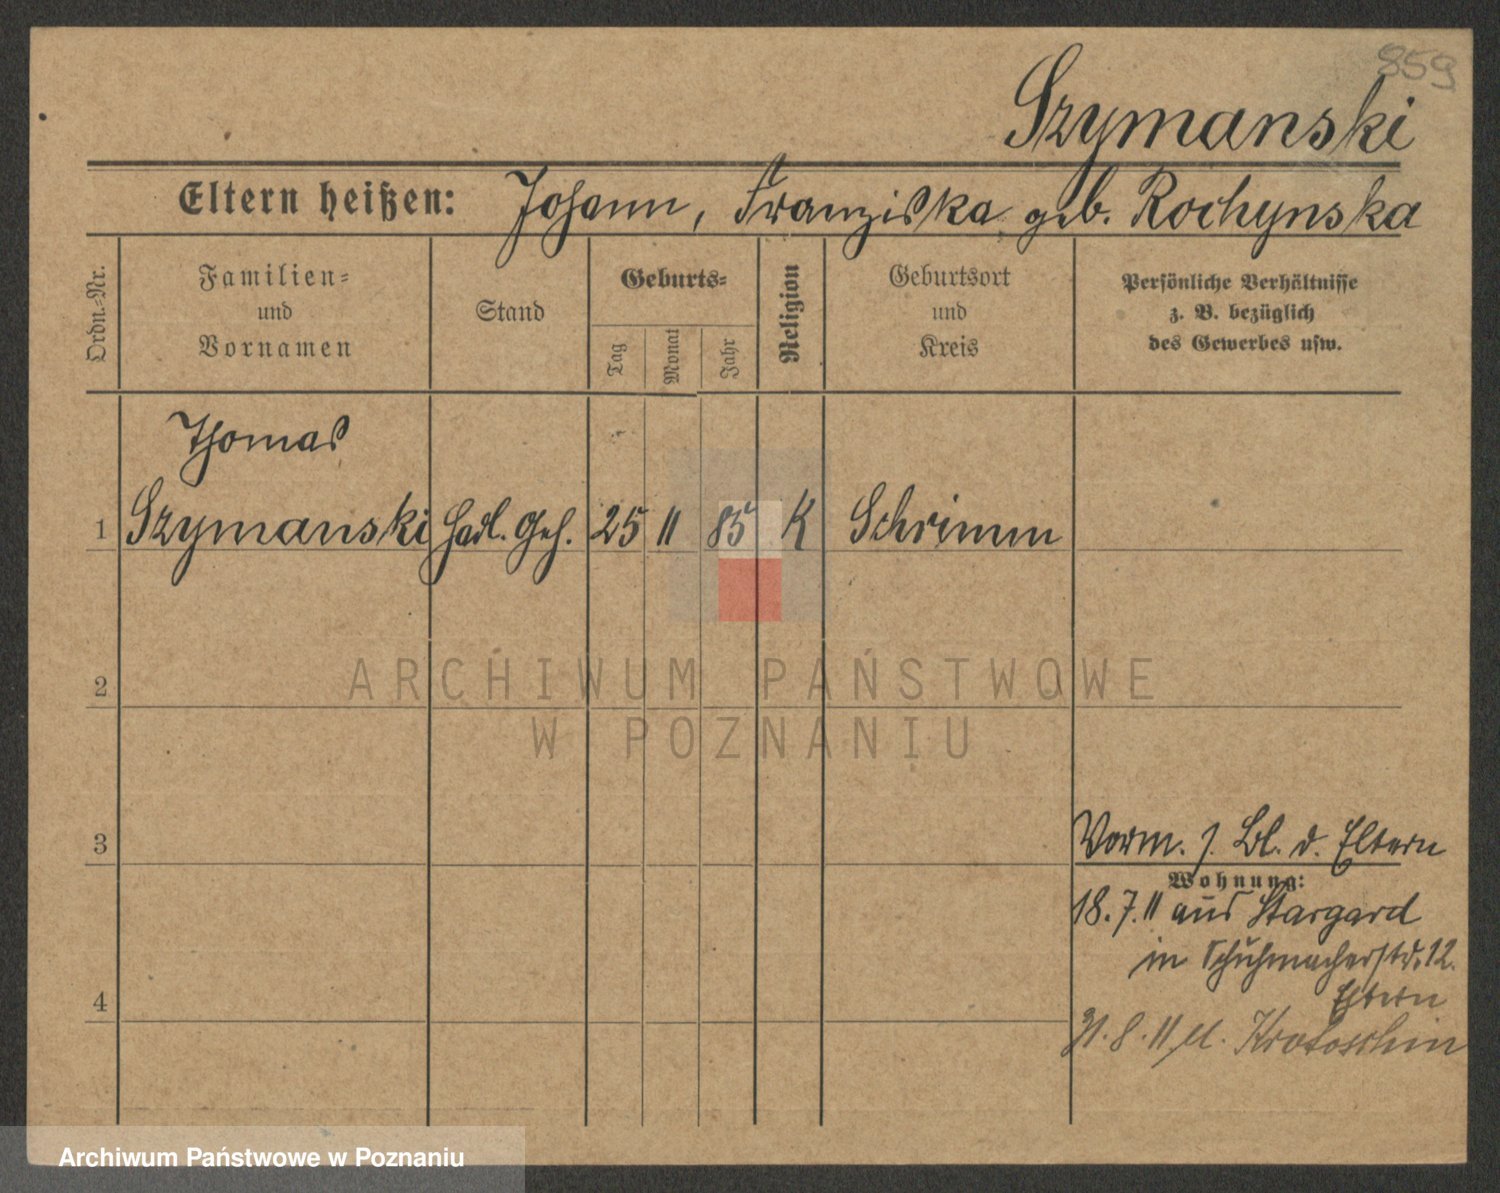 859
Szymanski
Eltern heißen: Johann, Franziska geb. Rochynska
Ordn.=Nr.
Familien=
und
Vornamen
Stand
Geburts=
Tag
Monat
Jahr
Religion
Geburtsort
und
Kreis
Persönliche Verhältnisse
z. B. bezüglich
des Gewerbes usw.
Thomas
1 Szymanski Hdl. Geh. 25 11 85 K Schrimm
2
3
Vorm. s. Bl. d. Eltern
Wohnung:
18.7.11 aus Stargard
in Schuhmacherstr. 12.
Eltern
4
31.8.11 Krotoschin
ARCHIWUM PAŃSTWOWE
W POZNANIU
Archiwum Państwowe w Poznaniu